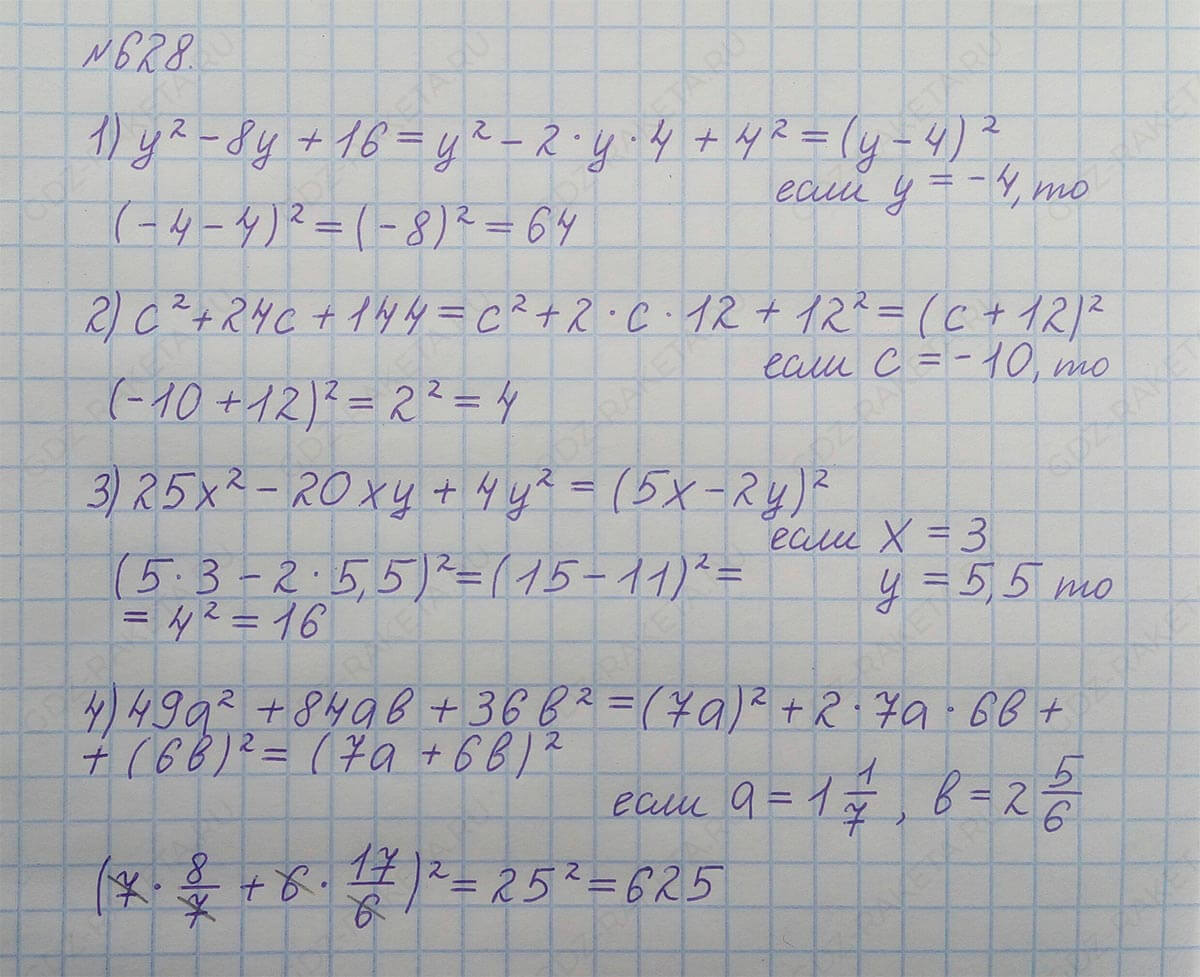 №628.
1) y² - 8y + 16 = y² - 2·y·4 + 4² = (y - 4)²
если y = -4, то
(-4 - 4)² = (-8)² = 64
2) c² + 24c + 144 = c² + 2·c·12 + 12² = (c + 12)²
если c = -10, то
(-10 + 12)² = 2² = 4
3) 25x² - 20xy + 4y² = (5x - 2y)²
если x = 3
(5·3 - 2·5,5)² = (15 - 11)² =
y = 5,5 то
= 4² = 16
4) 49a² + 84ab + 36b² = (7a)² + 2·7a·6b +
+ (6b)² = (7a + 6b)²
если a = 1 1/7, b = 2 5/6
(7·8/7 + 6·17/6)² = 25² = 625
GDZ-RAKETA.RU